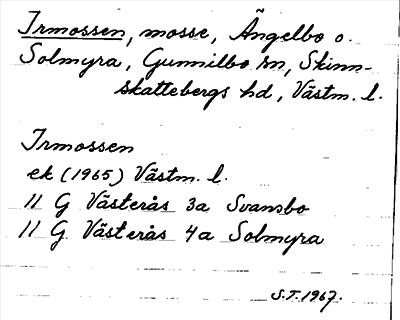 Irmossen, mosse, Ängelbo o.
Solmyra, Gunnilbo sn, Skinn-
skattebergs hd, Västm. l.
Irmossen
ek (1965) Västm. l.
11 G Västerås 3a Svansbo
11 G Västerås 4a Solmyra
S.T. 1967.